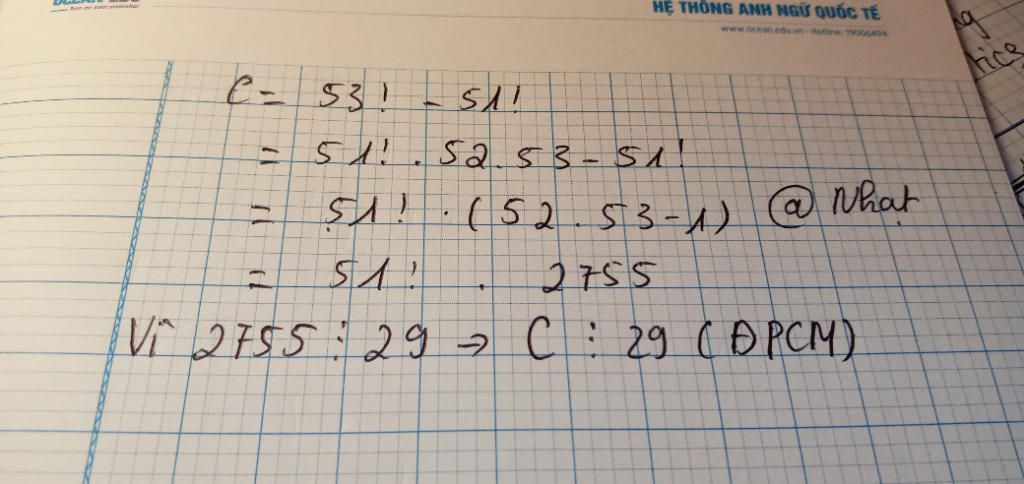 HỆ THỐNG ANH NGỮ QUỐC TẾ
www.ocean.edu.vn - Hotline: 19006494
C = 53! - 51!
= 51! . 52 . 53 - 51!
= 51! . (52 . 53 - 1) @ Nhat
= 51! . 2755
Vì 2755 ⋮ 29 → C ⋮ 29 (ĐPCM)